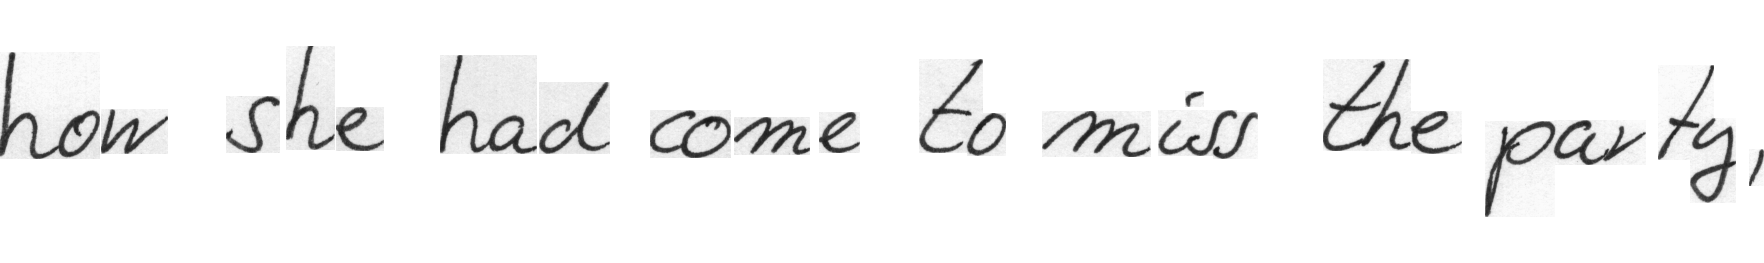 how she had come to miss the party,